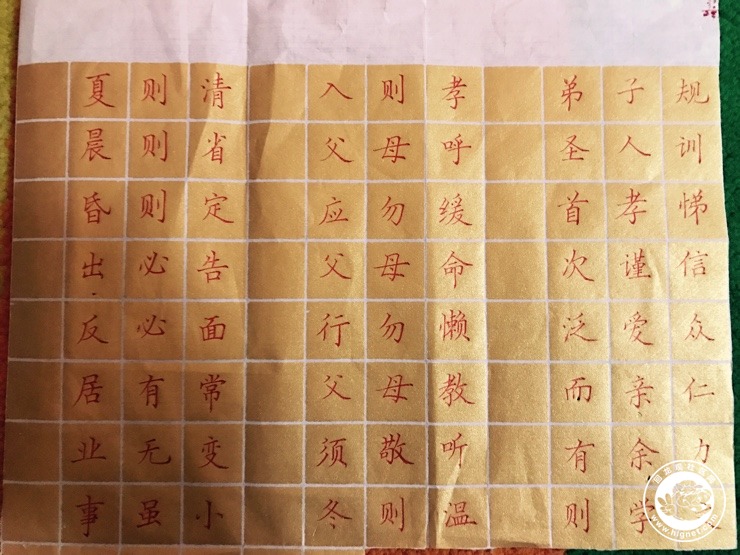 弟子规
圣人训
首孝悌
次谨信
泛爱众
而亲仁
有余力
则学
入则孝
父母呼
应勿缓
父母命
行勿懒
父母教
须敬听
冬则温
夏则清
晨则省
昏则定
出必告
反必面
居有常
业无变
事虽小